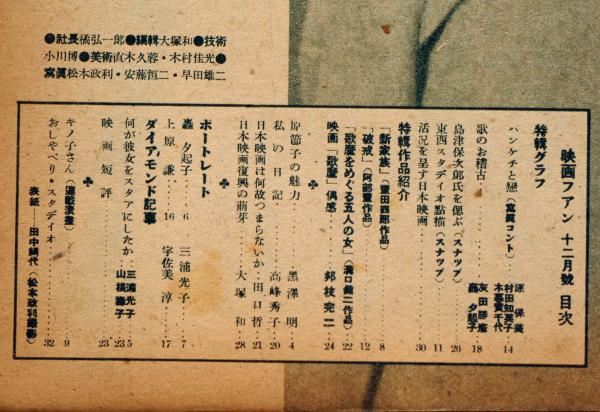 ●社長橘弘一郎●編輯大塚和●技術
小川博●美術直木久蓉・木村佳光●
寫眞松本政利・安藤恒二・早田雄二
映画ファン 十二月號 目次
特輯グラフ
ハンケチと戀（寫眞コント）
原保美
村田知英子
木暮實千代
14
歌のお稽古
灰田勝彦
轟夕起子
18
島津保次郎氏を偲ぶ（スナップ） 26
東西スタヂオ點描（スナップ） 11
活況を呈す日本映画 30
特輯作品紹介
「新家族」（豊田四郎作品） 8
「破戒」（阿部豊作品） 12
「歌麿をめぐる五人の女」（溝口健二作品） 22
映画「歌麿」偶感 邦枝完二 24
♣
原節子の魅力 黒澤明 4
私の日記 高峰秀子 20
日本映画は何故つまらないか 田口哲 21
日本映画復興の萠芽 大塚和 28
♣
ポートレート
轟夕起子 6 三浦光子 7
上原謙 16 宇佐美淳 17
ダイアモンド記事
何が彼女をスタアにしたか
三浦光子 5
山根壽子 23
映画短評 23
♣
キノ子さん（連載漫畫） 9
おしやべり・スタデイオ 32
表紙——田中絹代（松本政利撮影）